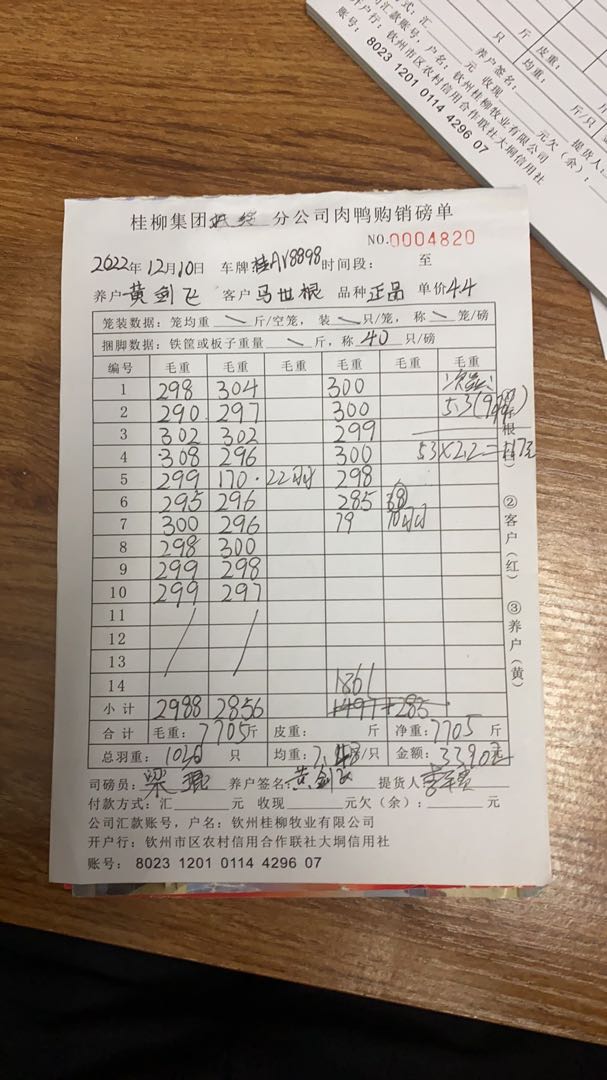 式：汇
斤 皮重：
汇款账号，户名：钦州桂柳牧业有限公司
元 收现
养户签名：
只 均重：
开户行：钦州市区农村信用合作联社大垌信用社
账号： 8023 1201 0114 4296 07
元欠（余）：
提货人
斤/只
桂柳集团 分公司肉鸭购销磅单
NO.0004820
2022年12月10日 车牌桂AV8898时间段： 至
养户黄剑飞 客户马世根 品种正品 单价4.4
笼装数据：笼均重 \ 斤/空笼，装 \ 只/笼，称 \ 笼/磅
捆脚数据：铁筐或板子重量 \ 斤，称 40 只/磅
编号 毛重 毛重 毛重 毛重 毛重 毛重
1 298 304 300
2 290 297 300 53
3 302 302 299
4 308 296 300 53×2.2=117元
5 299 170 · 22 298
6 295 296 285
7 300 296 79
8 298 300
9 299 298
10 299 297
11
12
13
14 1861
小计 2988 2856 1497+285
合计 毛重：7705斤 皮重： 斤 净重：7705斤
总羽重： 只 均重： /只 金额：3390
司磅员： 养户签名：黄剑飞 提货人
付款方式：汇 元 收现 元欠（余）： 元
公司汇款账号，户名：钦州桂柳牧业有限公司
开户行：钦州市区农村信用合作联社大垌信用社
账号： 8023 1201 0114 4296 07
②客户（红）
③养户（黄）